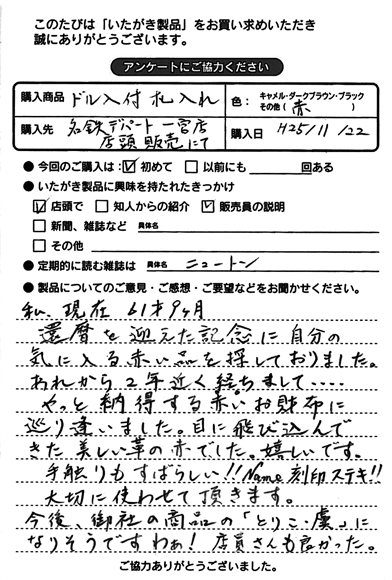 このたびは「いたがき製品」をお買い求めいただき
誠にありがとうございます。
アンケートにご協力ください
購入商品 ドル入付 札入れ
色： キャメル・ダークブラウン・ブラック
その他（ 赤 ）
購入先 名鉄デパート一宮店
店頭販売にて
購入日 H25/11/22
● 今回のご購入は：☑ 初めて □ 以前にも 回ある
● いたがき製品に興味を持たれたきっかけ
☑ 店頭で □ 知人からの紹介 ☑ 販売員の説明
□ 新聞、雑誌など 具体名
□ その他
● 定期的に読む雑誌は 具体名 ニュートン
● 製品についてのご意見・ご感想・ご要望などをお聞かせください。
私、現在 61才9ヶ月
還暦を迎えた記念に自分の
気に入る赤い品を探しておりました。
あれから2年近く経ちまして‥‥
やっと納得する赤いお財布に
巡り逢いました。目に飛び込んで
きた美しい革の赤でした。嬉しいです。
手触りもすばらしい!!Name刻印ステキ!!
大切に使わせて頂きます。
今後、御社の商品の「とりこ・虜」に
なりそうですわぁ! 店員さんも良かった。
ご協力ありがとうございました。